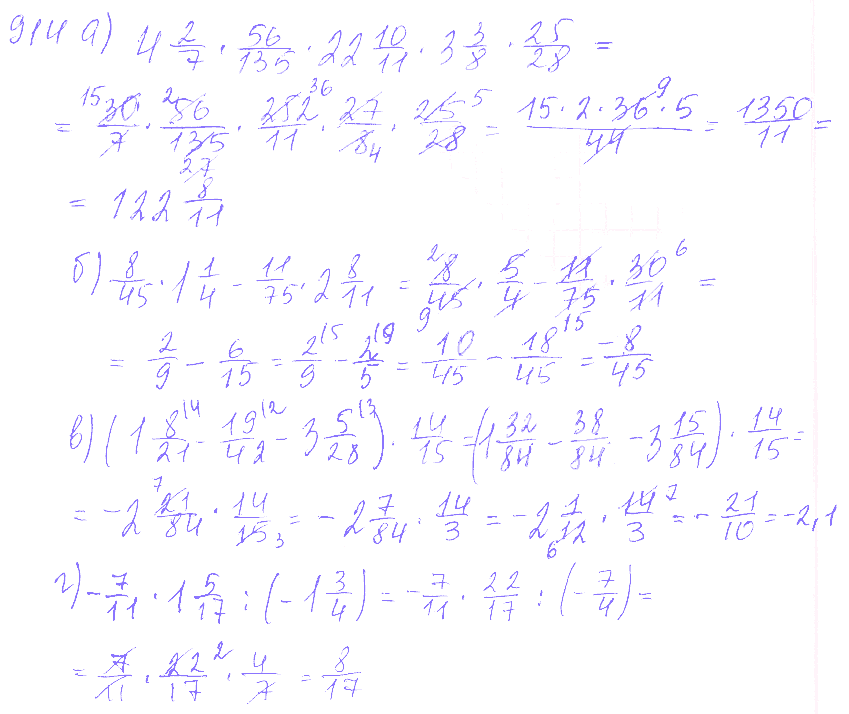 914 а) 4 2/7 · 56/135 · 22 10/11 · 3 3/8 · 25/28 =
= 15 30/7 · 2 56/135 27 · 252/11 36 · 27/8 4 · 25/28 5 = 15 · 2 · 36 · 5 9/44 = 1350/11 =
= 122 8/11
б) 8/45 · 1 1/4 - 11/75 · 2 8/11 = 2 8/45 9 · 5/4 - 11/75 15 · 30/11 6 =
= 2/9 - 6/15 = 2/9 (5 - 2/5 (9 = 10/45 - 18/45 = -8/45
в) (1 8/21 (4 - 19/42 (2 - 3 5/28 (3) · 14/15 = (1 32/84 - 38/84 - 3 15/84) · 14/15 =
= -2 7 21/84 · 14/15 3 = -2 7/84 · 14/3 = -2 1/12 6 · 14/3 7 = -21/10 = -2,1
г) -7/11 · 1 5/17 : (-1 3/4) = -7/11 · 22/17 : (-7/4) =
= 7/11 · 22/17 2 · 4/7 = 8/17